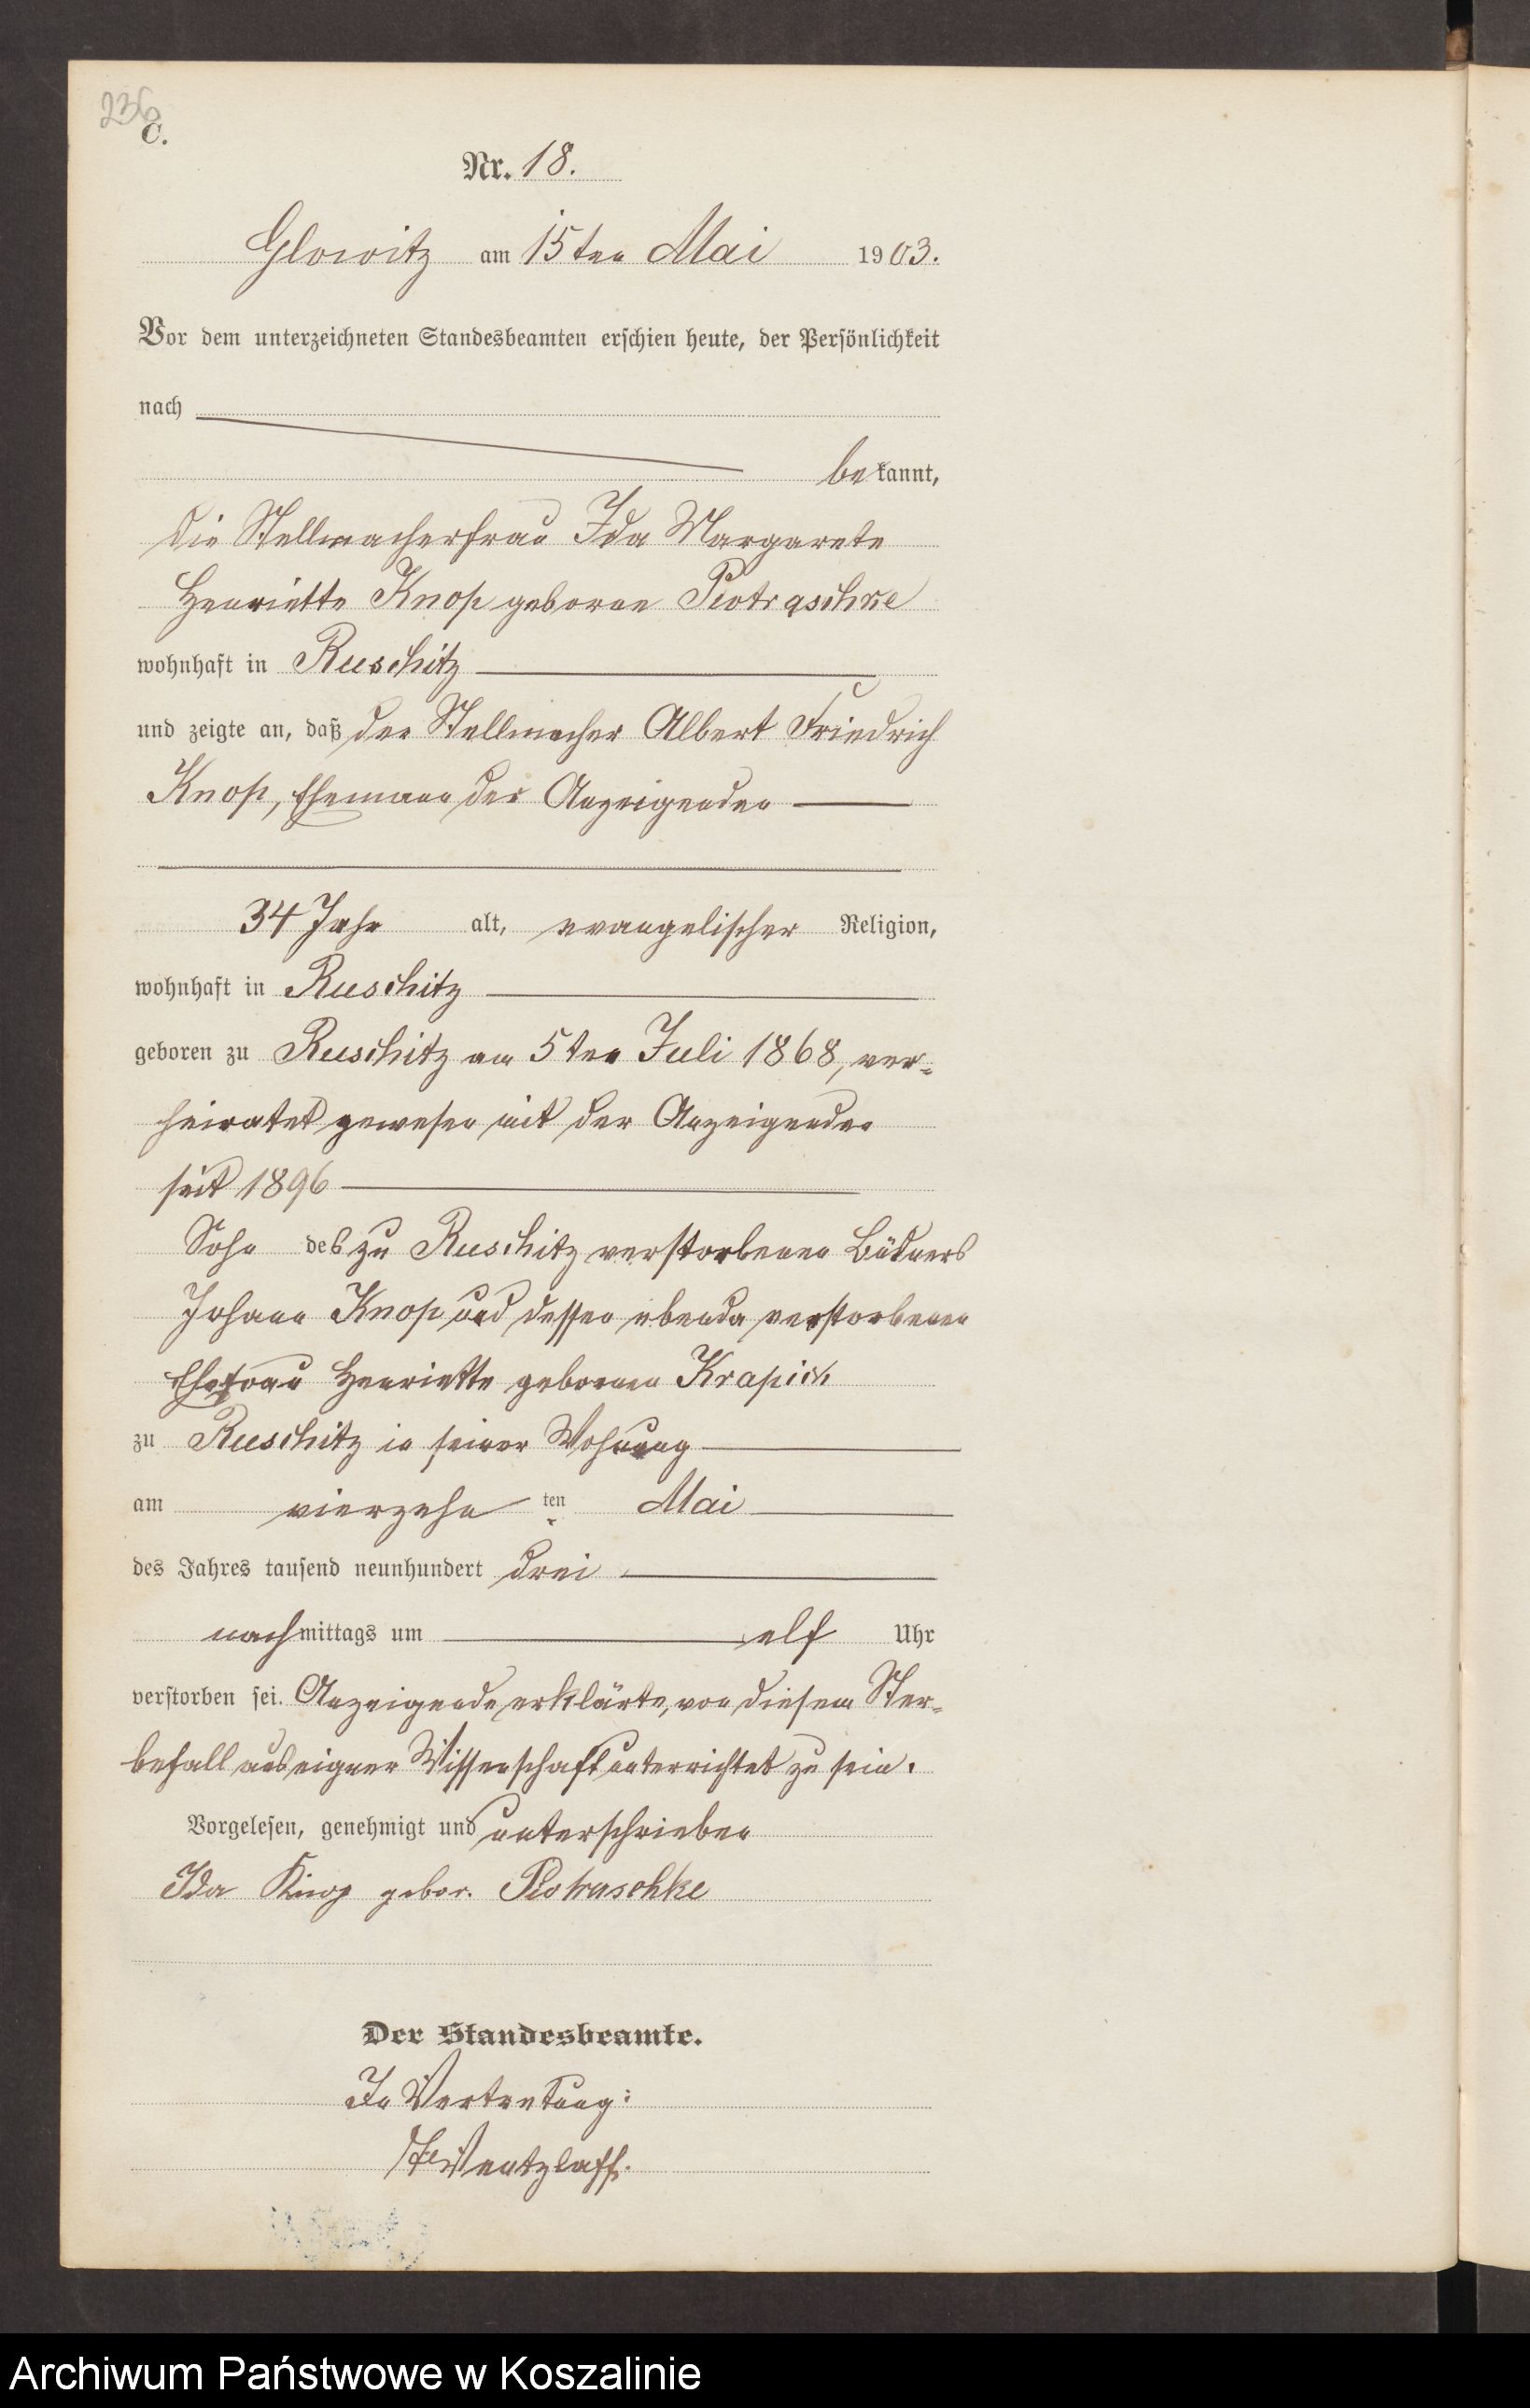 236
C.
Nr. 18.
Glowitz am 15ten Mai 1903.
Vor dem unterzeichneten Standesbeamten erschien heute, der Persönlichkeit
nach
bekannt,
die Stellmacherfrau Ida Margarete
Henriette Knop geborne Piotraschke
wohnhaft in Ruschitz
und zeigte an, daß der Stellmacher Albert Friedrich
Knop, Ehemann der Anzeigenden
34 Jahr alt, evangelischer Religion,
wohnhaft in Ruschitz
geboren zu Ruschitz am 5ten Juli 1868, ver-
heiratet gewesen mit der Anzeigenden
seit 1896
Sohn des zu Ruschitz verstorbenen Büdners
Johann Knop und dessen ebenda verstorbenen
Ehefrau Henriette gebornen Krapick
zu Ruschitz in seiner Wohnung
am vierzehnten Mai
des Jahres tausend neunhundert drei
nachmittags um elf Uhr
verstorben sei. Anzeigende erklärte, von diesem Ster-
befall aus eigner Wissenschaft unterrichtet zu sein.
Vorgelesen, genehmigt und unterschrieben
Ida Knop gebor. Piotraschke
Der Standesbeamte.
In Vertretung:
Wentzlaff.
Archiwum Państwowe w Koszalinie